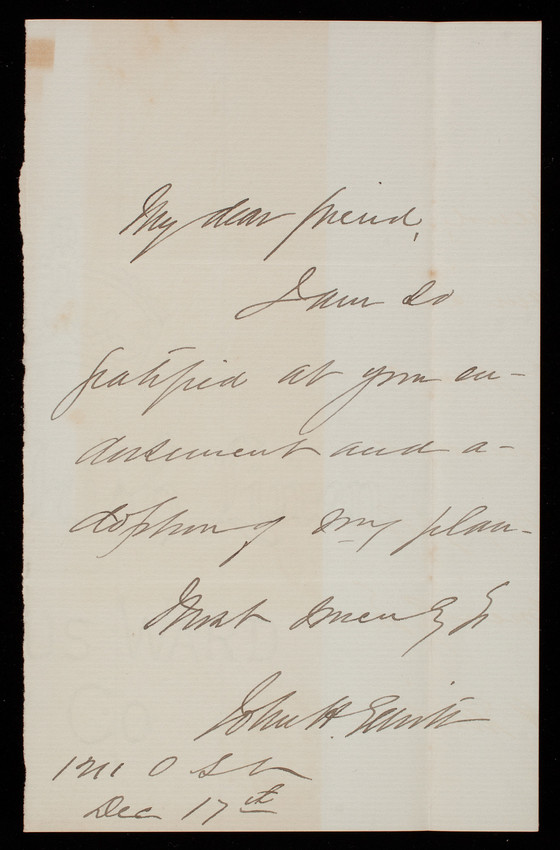 My dear friend,
I am so
gratified at your en-
dorsement and a-
doption of my plan-
Most sincerely yr
John H.
1711 O St
Dec 17th